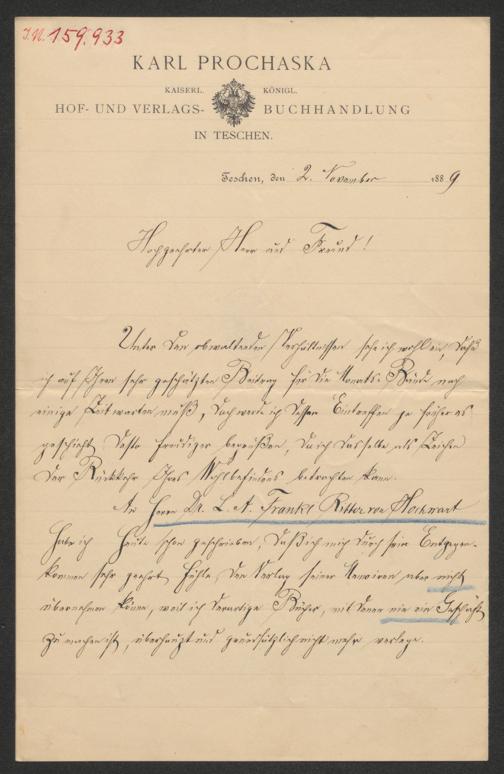 I.N. 159.933
KARL PROCHASKA
KAISERL. KÖNIGL.
HOF- UND VERLAGS- BUCHHANDLUNG
IN TESCHEN.
Teschen, den 2. November 1889
Hochgeehrter Herr und Freund!
Unter den obwaltenden Verhältnissen sehe ich wohl ein, daß
ich auf Ihren sehr geschätzten Beitrag für die Monats-Bände noch
einige Zeit warten muß, doch werde ich dessen Eintreffen je früher es
geschieht desto freudiger begrüßen, da ich dasselbe als Zeichen
der Rückkehr Ihres Wohlbefindens betrachten kann.
An Herrn Dr. L. A. Frankl Ritter von Hochwart
habe ich heute schon geschrieben, daß ich mich durch sein Entgegen-
kommen sehr geehrt fühle, den Verlag seiner Memoiren aber nicht
übernehmen könne, weil ich derartige Bücher, mit denen nie ein Geschäft
zu machen ist, überhaupt und grundsätzlich nicht mehr verlege.